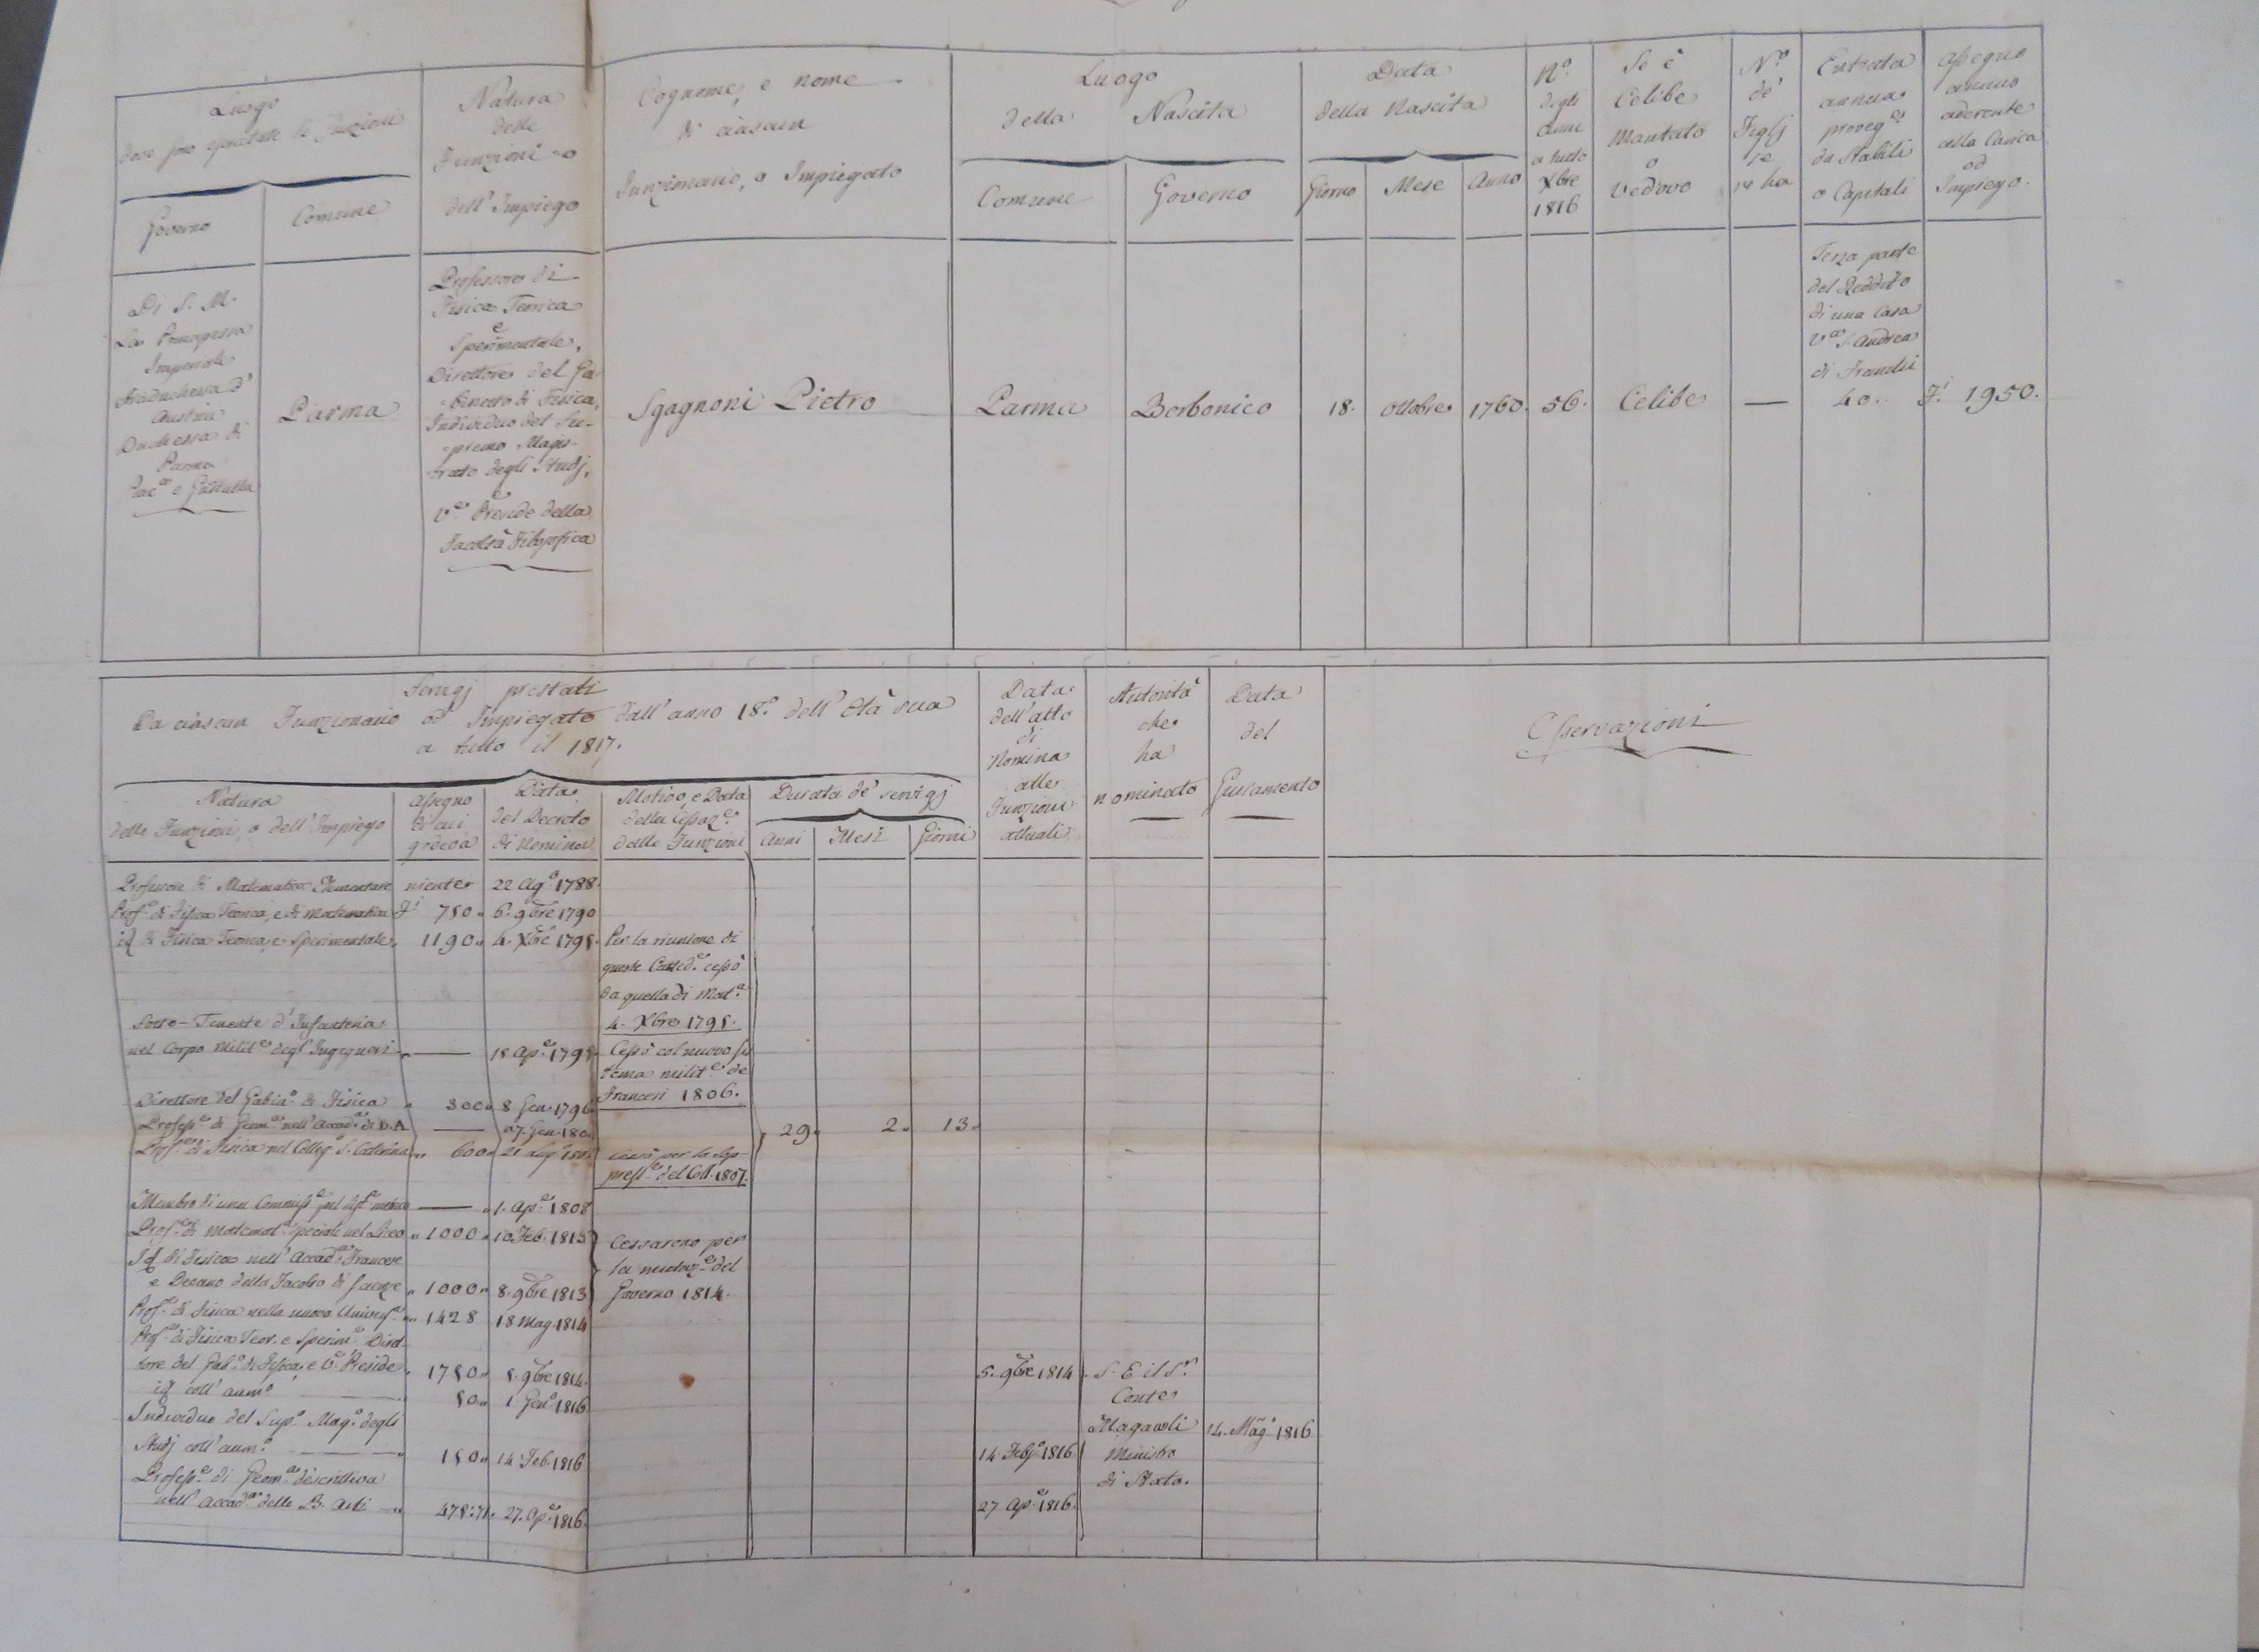 Luogo
dove sono esercitate le Funzioni
Governo
Comune
Natura
delle
Funzioni o
dell' Impiego
Cognome, e nome
di ciascun
Funzionario, o Impiegato
Luogo
della Nascita
Comune
Governo
Data
della Nascita
Giorno
Mese
Anno
N.o
degli
anni
a tutto
Xbre
1816
Se è
Celibe
Maritato
o
Vedovo
N.o
de'
Figlj
se
ne ha
Entrata
annua
proveg.
da Stabili
o Capitali
Assegno
annuo
aderente
alla Carica
od
Impiego.
Di S. M.
La Principessa
Imperiale
Arciduchessa d'
Austria
Duchessa di
Parma
Piac.a e Guastalla
Parma
Professore di
Fisica Teorica
e
Sperimentale,
Direttore del Ga-
-binetto di Fisica,
Individuo del Su-
-premo Magis-
-trato degli Studj,
e
V.e Preside della
Facoltà Filosofica
Sgagnoni Pietro
Parma
Borbonico
18.
Ottobre
1760.
56.
Celibe
—
Terza parte
del Reddito
di una Casa
V.a S. Andrea
di Franchi
40.
F.i 1950.
Servigj prestati
Da ciascun Funzionario od Impiegato dall' anno 18.o dell' Età sua
a tutto il 1817.
Natura
delle Funzioni, o dell' Impiego
Assegno
di cui
godeva
Data
del Decreto
di Nomina
Motivo, e Data
della Cessaz.e
dalle Funzioni
Durata de' servigj
Anni
Mesi
Giorni
Data
dell' atto
di
Nomina
alle
Funzioni
attuali
Autorità
che
ha
nominato
Data
del
Giuramento
Osservazioni
Professore di Matematica Elementare niente 22 Ag.o 1788.
Prof.e di Fisica Teorica, e di Matematica F.i 750. 6. 9bre 1790
id di Fisica Teorica, e Sperimentale, 1190. 4. Xbre 1795. Per la riunione di
queste Catted.e cessò
da quella di Mat.a
4. Xbre 1795.
Sotto-Tenente d' Infanteria
nel Corpo Milit.e degl' Ingegneri — 15 Ap.e 1795. Cessò col nuovo si
stema milit.e de
Francesi 1806.
Direttore del Gabin.o di Fisica 300. 8 Gen. 1796
Profess.e di Geom.a nell' Accad.a di B. A. — 27. Gen. 180
Prof.e di Fisica nel Colleg.o S. Caterina 600. 21 1806 Cessò per la Sop-
press.e del Coll. 1807.
29. 2. 13.
Membro di una Commiss.e — 1. Ap.e 1808
Prof.e di Matemat.a speciale nel Liceo 1000. 10 Feb. 1813
Id di Fisica nell' Accad.a Francese
e Decano della Facoltà di Scienze 1000. 8. 9bre 1813
Cessarono per
la mutaz.e del
Governo 1814.
Prof.e di Fisica nella nuova Univers.à 1428 18 Mag. 1814
Prof.e di Fisica Teor. e Sperim.e Diret
tore del Gab.o di Fisica, e V.e Preside 1750. 5. 9bre 1814. 5. 9bre 1814 S. E. il S.r
id coll' aum.o 50. 1. Gen.o 1816 Conte
Individuo del Sup.o Mag.o degli Magawli 14. Mag.o 1816
Studj coll' aum.o 150. 14 Feb. 1816 14. Feb.o 1816 Ministro
di Stato.
Profess.e di Geom.a descrittiva
nell' Accad.a delle B. Arti 475:71. 27. Ap.e 1816. 27 Ap.e 1816.